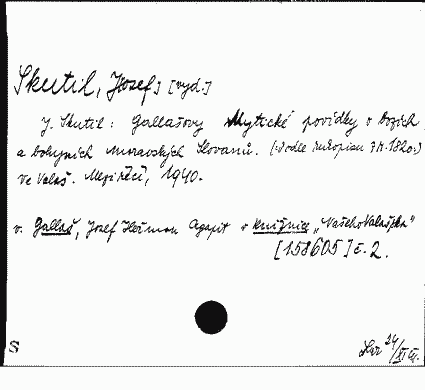 Skutil, Josef, [vyd.]
J. Skutil: Gallašovy Mytické povídky o bozích
a bohyních moravských Slovanů. (Podle rukopisu z r. 1820.)
Ve Valaš. Meziříčí, 1940.
v. Gallaš, Josef Heřman Agapit v knižnice „Našeho Valašska"
[158605] č. 2.
S 24/XI